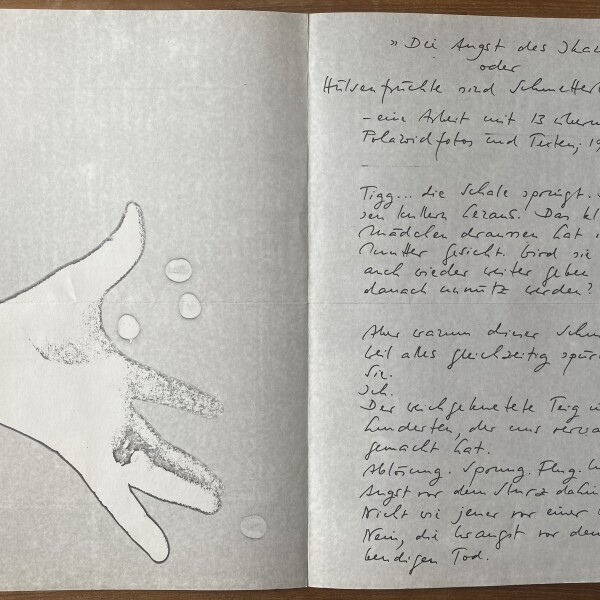 » Die Angst des Ika
oder
Hülsenfrüchte sind Schmetter
- eine Arbeit mit 13 überm
Polaroidfotos und Texten, 19
Tigg... die Schale springt.
sen kullern heraus. Das kl
Mädchen draussen hat
Mutter Gesicht. Wird sie
auch wieder weiter geben
danach unnütz werden?
Aber warum dieser Schm
Weil alles gleichzeitig spür
Sie.
Ich.
Der weichgeknetete Teig
hunderten, der uns
gemacht hat.
Ablösung. Sprung. Flug.
Angst vor dem Sturz dahin
Nicht wie jener vor einer
Nein, die Urangst vor dem
bendigen Tod.